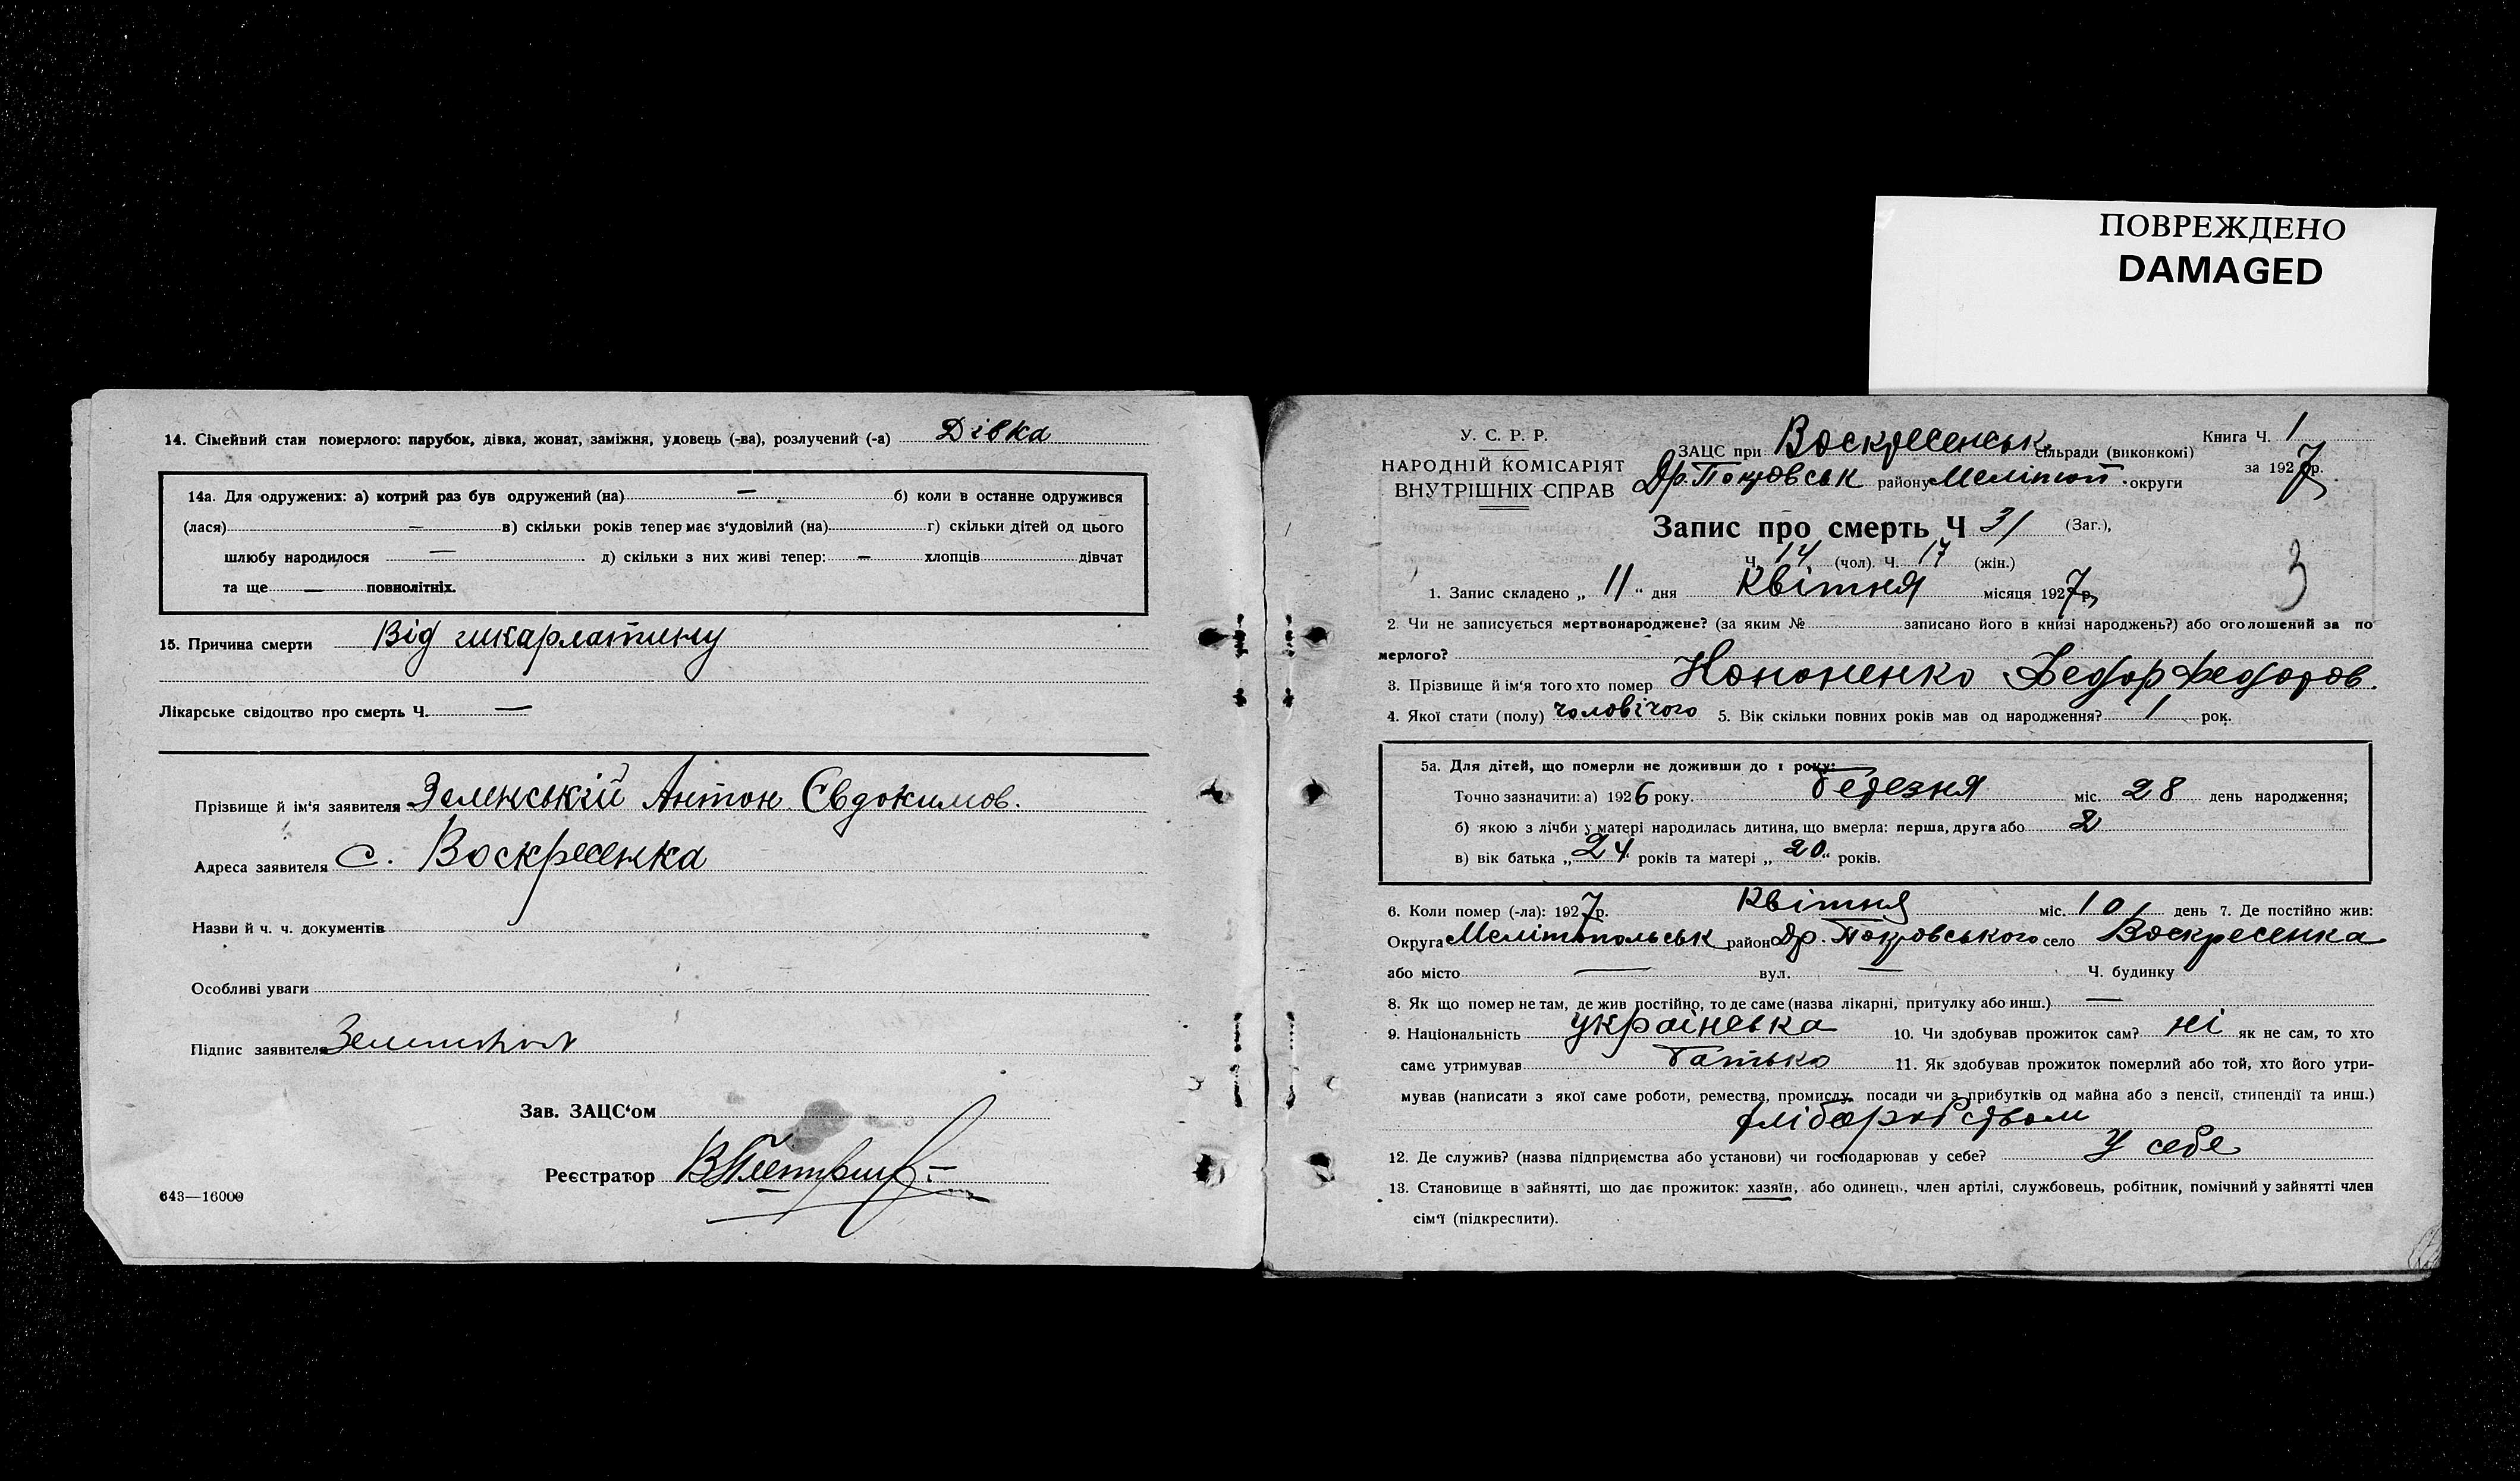 ПОВРЕЖДЕНО
DAMAGED
14. Сімейний стан померлого: парубок, дівка, жонат, заміжня, удовець (-ва), розлучений (-а) Дівка
14а. Для одружених: а) котрий раз був одружений (на) — б) коли в останнє одружився
(лася) — в) скільки років тепер має з'удовілий (на) г) скільки дітей од цього
шлюбу народилося — д) скільки з них живі тепер: — хлопців дівчат
та ще — повнолітніх.
15. Причина смерти Від шкарлатини
Лікарське свідоцтво про смерть Ч. —
Прізвище й ім'я заявителя Зеленський Антон Євдокимов.
Адреса заявителя с. Воскресенка
Назви й ч. ч. документів
Особливі уваги
Підпис заявителя
Зав. ЗАЦС'ом
Реєстратор
643—16000
У. С. Р. Р.
НАРОДНІЙ КОМІСАРІЯТ
ВНУТРІШНІХ СПРАВ
ЗАЦС при Воскресенськ. сільради (виконкомі)
Др. Покровськ району Мелітоп. округи
Книга Ч. 1
за 1927 р.
Запис про смерть Ч 31 (Заг.),
Ч. 14 (чол). Ч. 17 (жін.)
3
1. Запис складено „ 11 " дня Квітня місяця 1927 р.
2. Чи не записується мертвонароджене? (за яким № записано його в книзі народжень?) або оголошений за по
мерлого?
3. Прізвище й ім'я того хто помер Кононенко Федор Федоров.
4. Якої стати (полу) чоловічого 5. Вік скільки повних років мав од народження? 1 рок.
5а. Для дітей, що померли не доживши до 1 року:
Точно зазначити: а) 1926 року. березня міс. 28 день народження;
б) якою з лічби у матері народилась дитина, що вмерла: перша, друга або 2
в) вік батька „ 24 " років та матері „ 20 " років.
6. Коли помер (-ла): 1927 р. Квітня міс. 10 день 7. Де постійно жив:
Округа Мелітопольськ район Др. Покровського село Воскресенка
або місто — вул. — Ч. будинку
8. Як що помер не там, де жив постійно, то де саме (назва лікарні, притулку або инш.) —
9. Національність українська 10. Чи здобував прожиток сам? ні як не сам, то хто
саме утримував батько 11. Як здобував прожиток померлий або той, хто його утри-
мував (написати з якої саме роботи, ремества, промислу, посади чи з прибутків од майна або з пенсії, стипендії та инш.)
хліборобством
12. Де служив? (назва підприємства або установи) чи господарював у себе? у себе
13. Становище в зайнятті, що дає прожиток: хазяїн, або одинець, член артілі, службовець, робітник, помічний у зайнятті член
сім'ї (підкреслити).